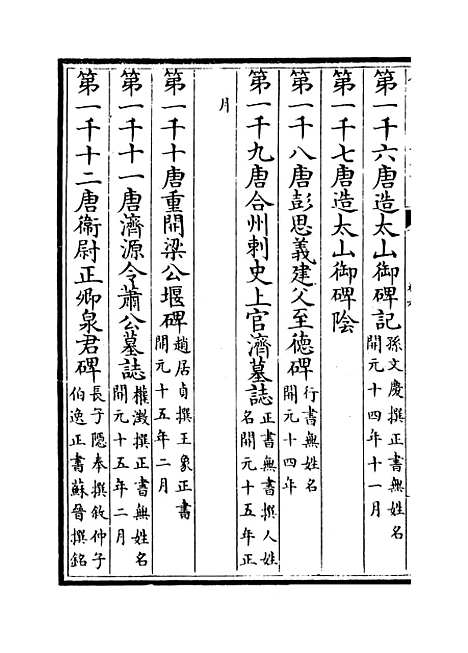 第一千六唐造太山御碑記孫文慶撰正書無姓名
開元十四年十一月
第一千七唐造太山御碑陰
第一千八唐彭思義建父至德碑行書無姓名
開元十四年
第一千九唐合州刺史上官濟墓誌正書無書撰人姓
名開元十五年正
月
第一千十唐重開梁公堰碑趙居貞撰王象正書
開元十五年二月
第一千十一唐濟源令蕭公墓誌權澂撰正書無姓名
開元十五年二月
第一千十二唐衞尉正卿泉君碑長子隱奉撰敘仲子
伯逸正書蘇晉撰銘